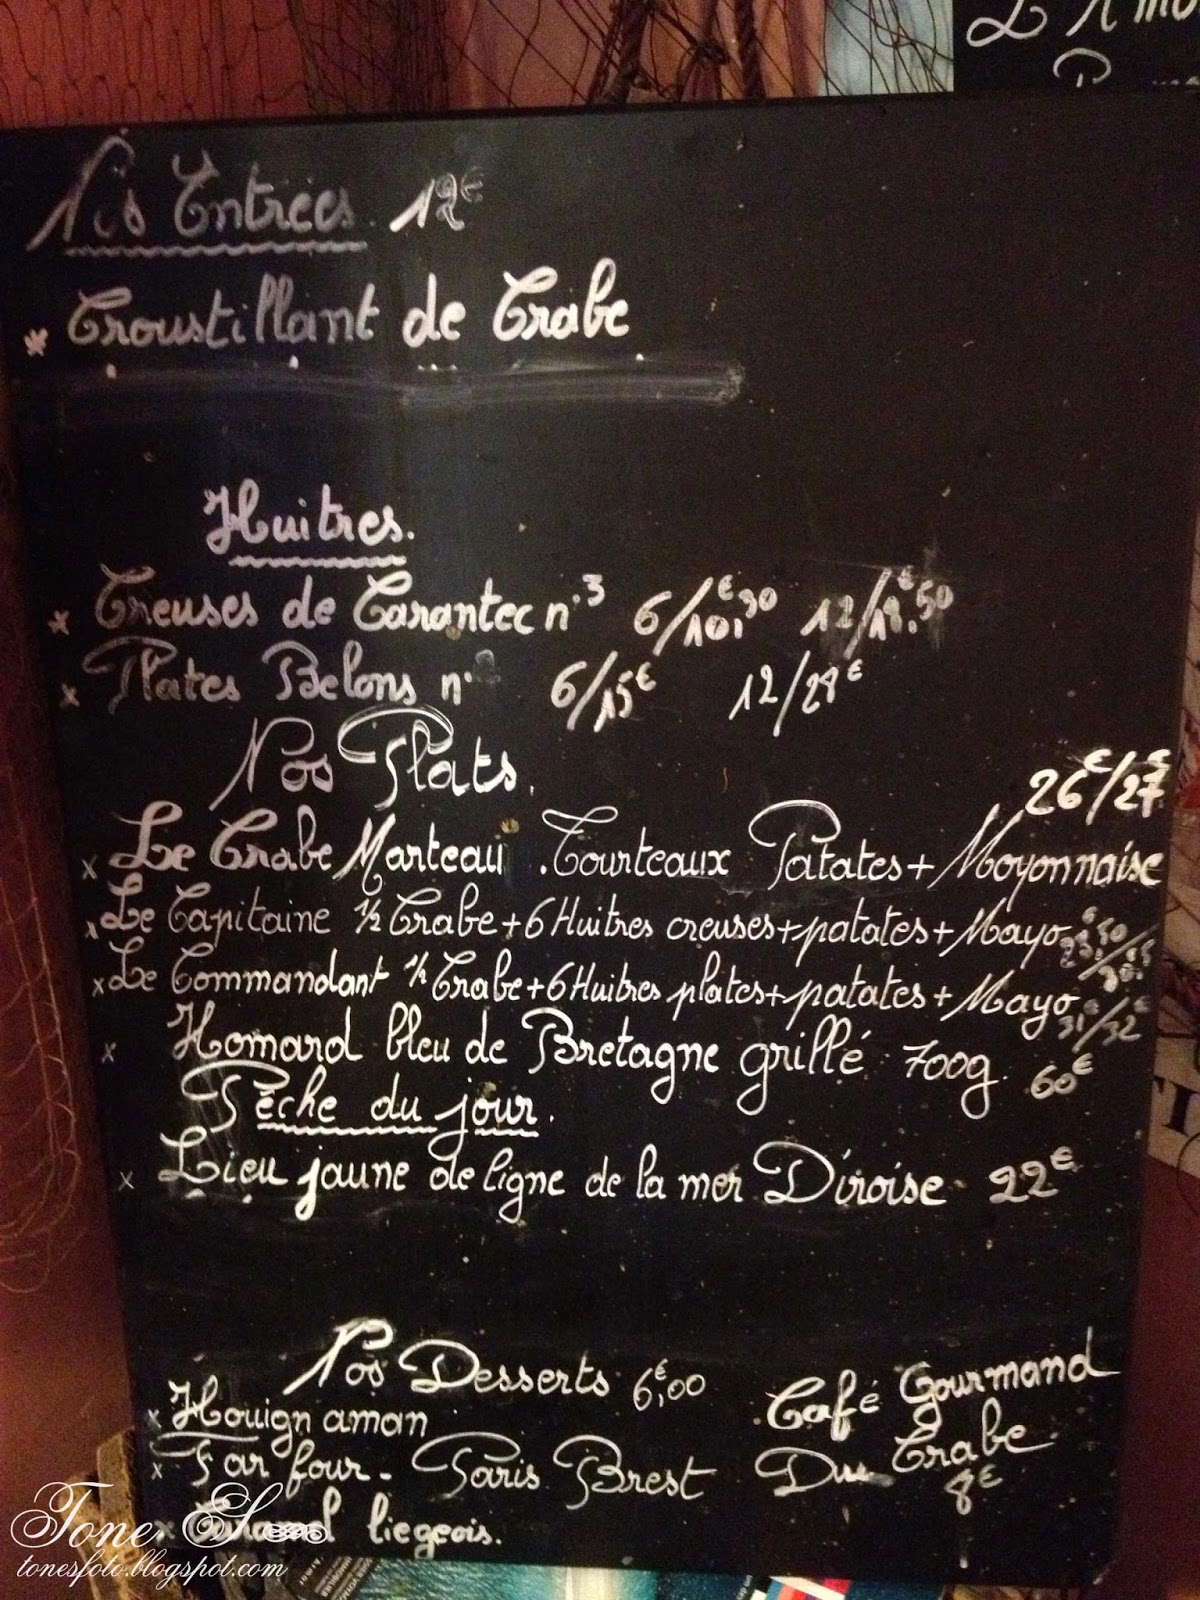 Nos Entrées 12€
* Croustillant de Crabe
Huitres.
x Creuses de Carantec n°3 6/10€,30 12/18€,50
x Plates Belons n° 6/15€ 12/28€
Nos Plats.
26€/27€
x Le Crabe Marteau . Tourteaux Patates + Mayonnaise
x Le Capitaine 1/2 Crabe + 6 Huitres creuses + patates + Mayo
x Le Commandant 1/2 Crabe + 6 Huitres plates + patates + Mayo 31€/32€
x Homard bleu de Bretagne grillé 700g. 60€
Pêche du jour.
x Lieu jaune de ligne de la mer D'iroise 22€
Nos Desserts 6€,00
x Houign aman
x Far four - Paris Brest
liegeois.
Café Gourmand
Du Crabe
8€
Tone S
tonesfoto.blogspot.com